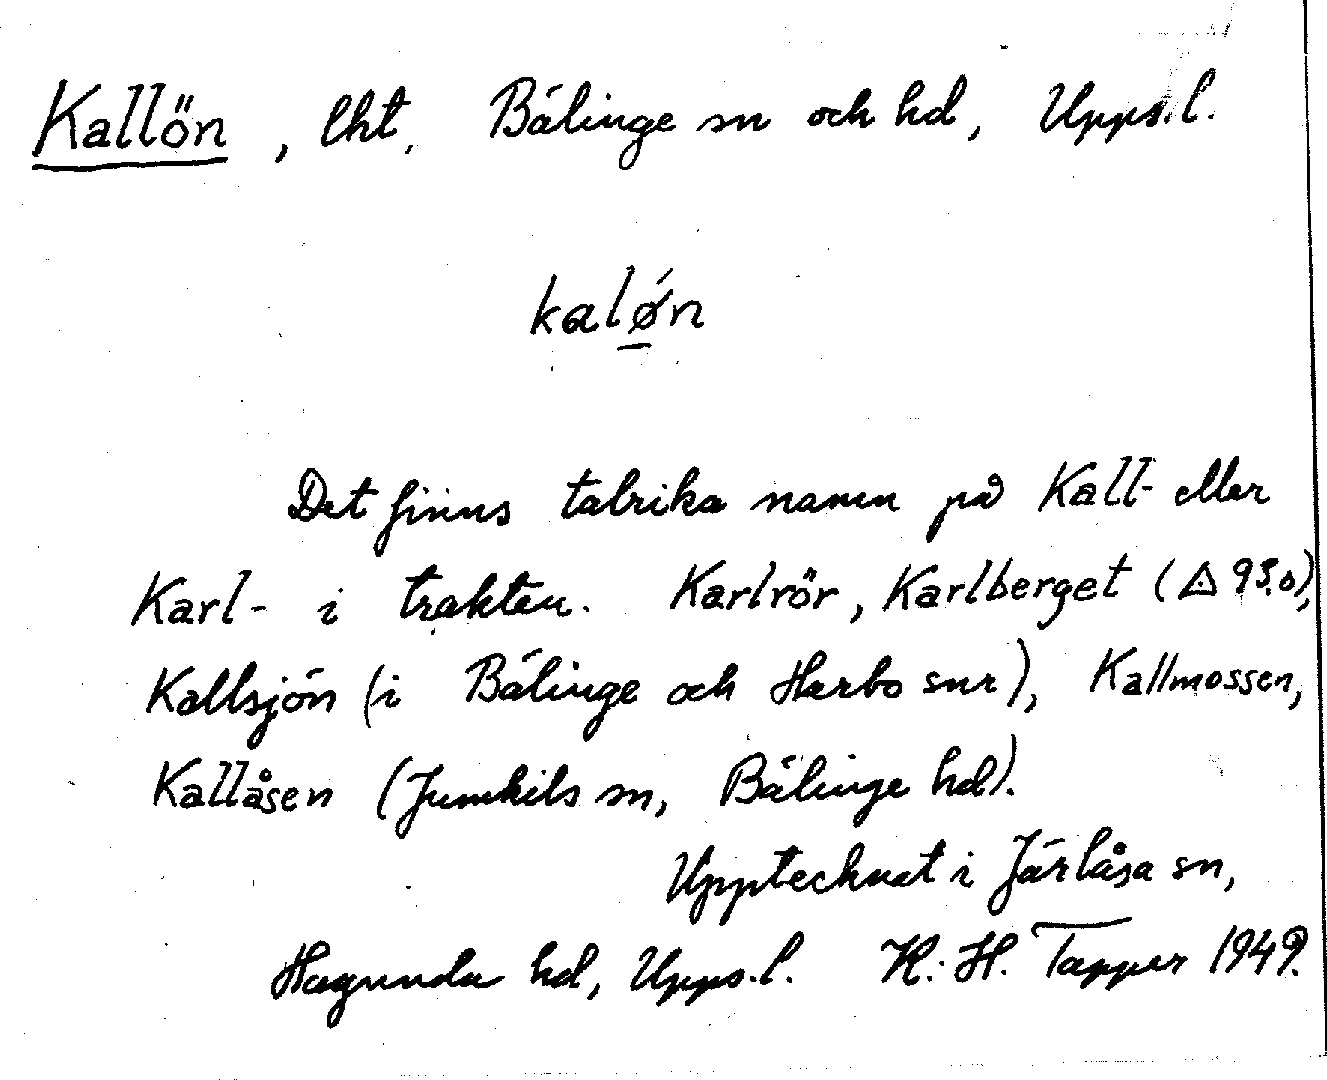 Kallön, lht, Bälinge sn och hd, Upps.l.
kalǿn
Det finns talrika namn på Kall- eller
Karl- i trakten. Karlrör, Karlberget (△ 93.0),
Kallsjön (i Bälinge och Harbo snr), Kallmossen,
Kallåsen (Jumkils sn, Bälinge hd).
Upptecknat i Järlåsa sn,
Hagunda hd, Upps.l. K.-H. Tapper 1949.